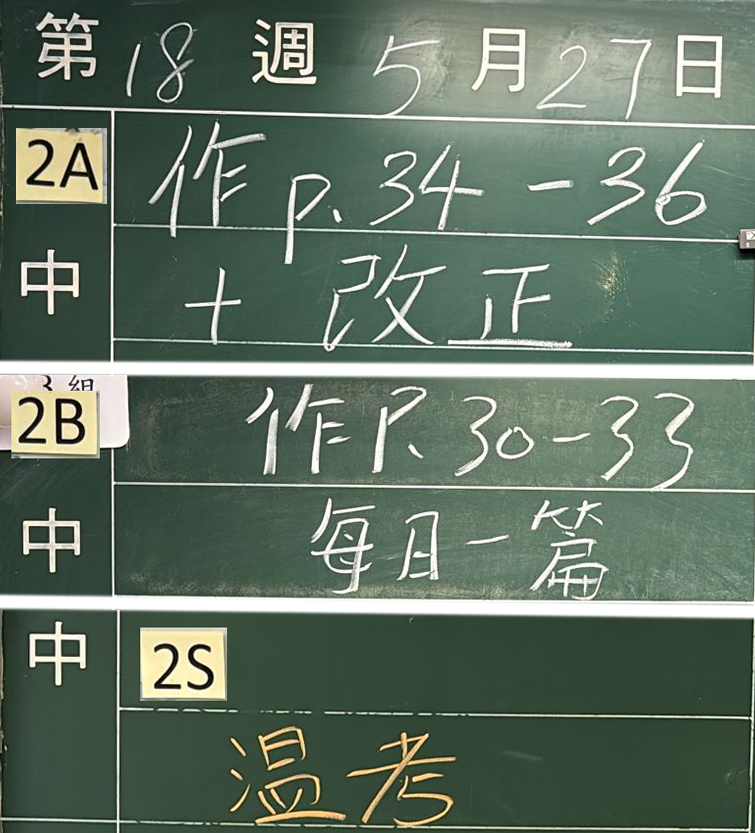 第18週 5月27日
2A
作 p.34-36
中
+ 改正
3組
2B
作P.30-33
中
每日一篇
中
2S
温考